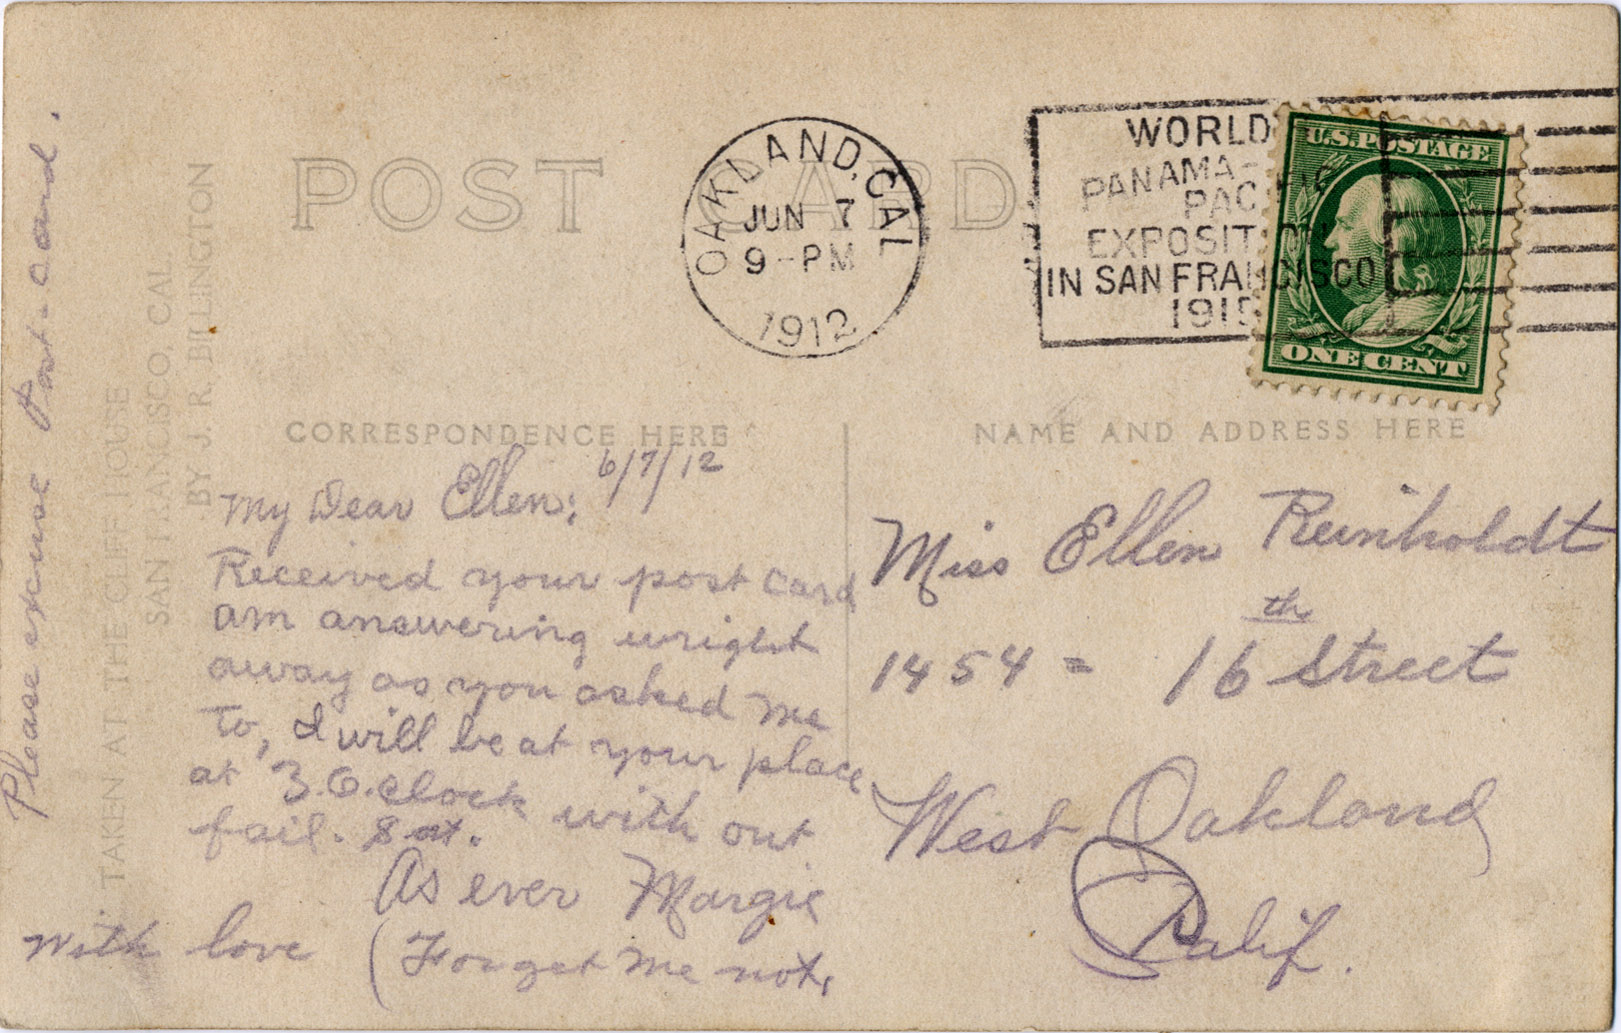 POST CARD
OAKLAND, CAL
JUN 7
9-PM
1912
WORLD
PANAMA-
PACIFIC
EXPOSITION
IN SAN FRANCISCO
1915
U.S. POSTAGE
ONE CENT
CORRESPONDENCE HERE
NAME AND ADDRESS HERE
6/7/12
My Dear Ellen:
Received your post card
am answering wright
away as you asked me
to, I will be at your place
at 3.O.clock with out
fail. Sat.
As ever Margie
With love (Forget me not,
Please excuse Post-card.
TAKEN AT THE CLIFF HOUSE
SAN FRANCISCO, CAL.
BY J. R. BILLINGTON
Miss Ellen Reinholdt
1454 = 16th Street
West Oakland
Calif.